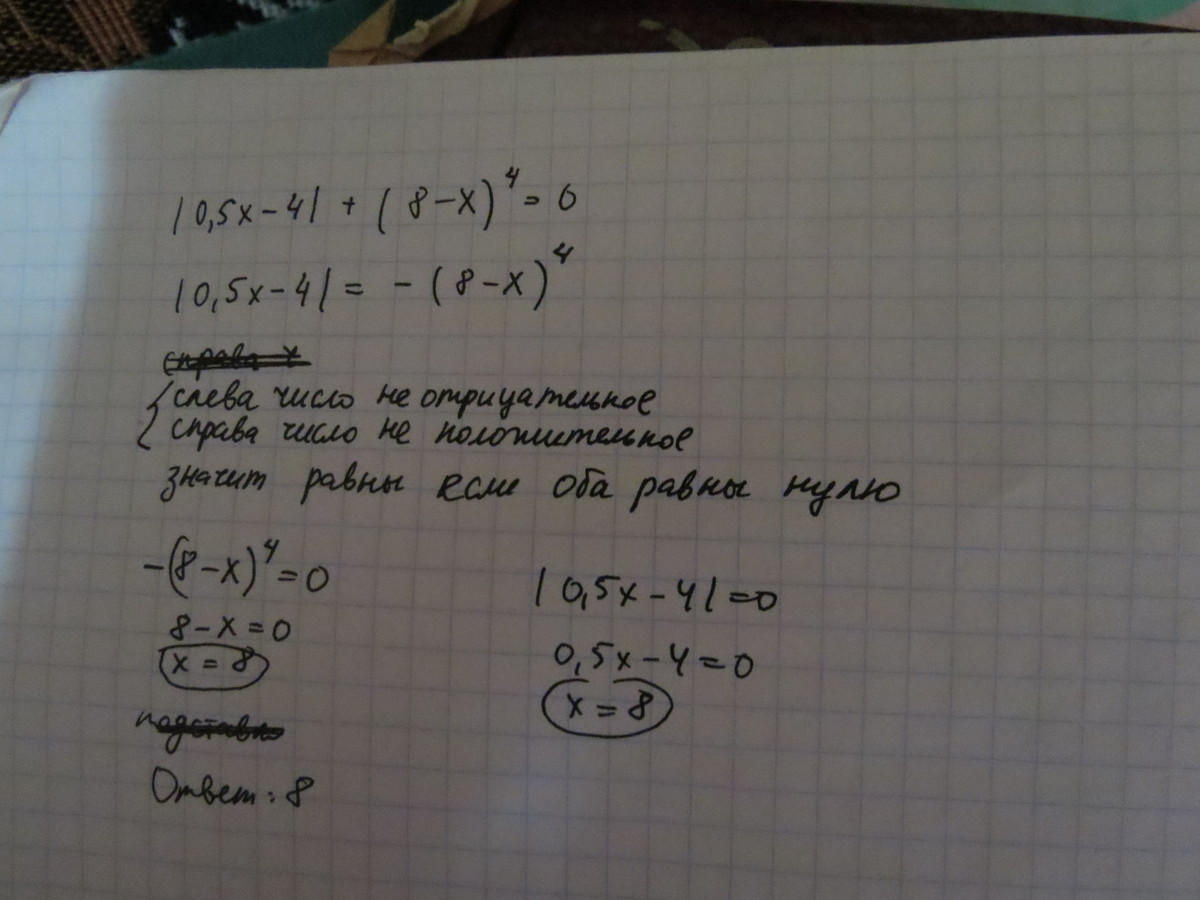 |0,5x-4| + (8-x)⁴ = 0
|0,5x-4| = -(8-x)⁴
справа x
слева число не отрицательное
справа число не положительное
значит равны если оба равны нулю
-(8-x)⁴=0
8-x=0
x=8
|0,5x-4|=0
0,5x-4=0
x=8
подставлю
Ответ: 8